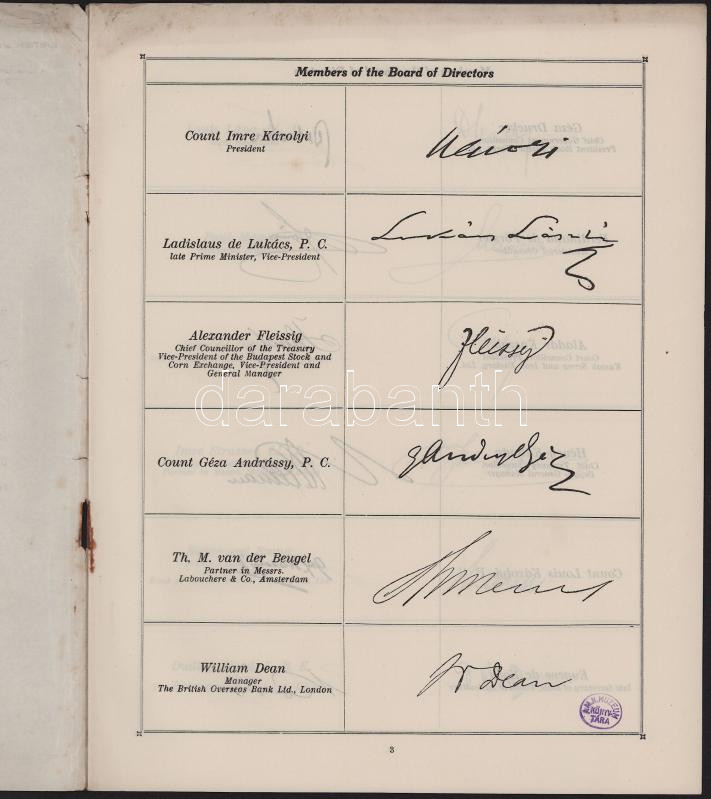 Members of the Board of Directors
Count Imre Károlyi
President
Károlyi
Ladislaus de Lukács, P. C.
late Prime Minister, Vice-President
Lukács László
Alexander Fleissig
Chief Councillor of the Treasury
Vice-President of the Budapest Stock and
Corn Exchange, Vice-President and
General Manager
Fleissig
darabanth
Count Géza Andrássy, P. C.
Th. M. van der Beugel
Partner in Messrs.
Labouchere & Co., Amsterdam
William Dean
Manager
The British Overseas Bank Ltd., London
W Dean
MUZEUM
KÖNYV-
TÁRA
3